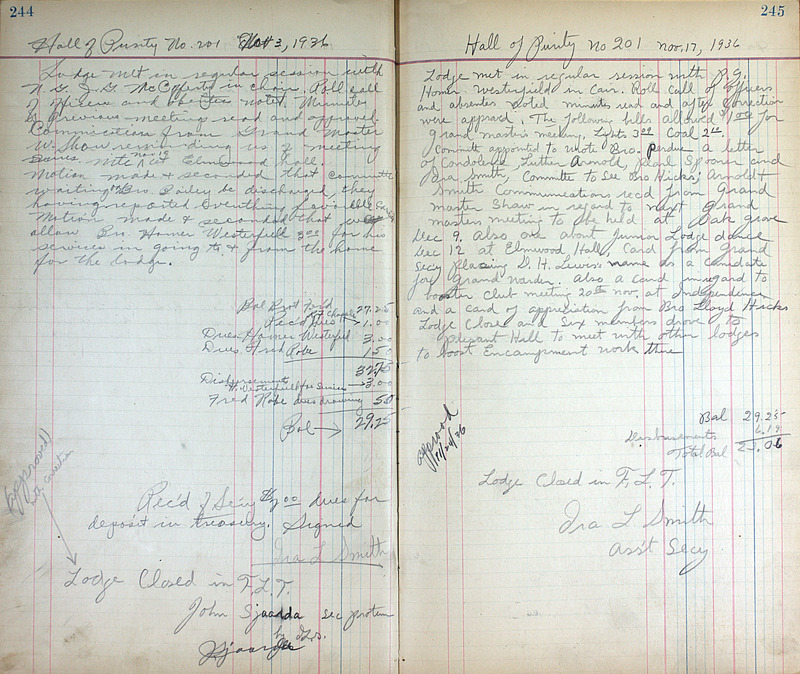 244
Hall of Purity No. 201 Nov 3, 1936
Lodge met in regular session with
N. G. J. G. McCafferty in chair. Roll call
of officers and absentees noted. Minutes
of previous meeting read and approved.
Communication from Grand Master
W. Shaw reminding us of meeting
Nov. 10 Elmwood hall.
Motion made & seconded that committee
waiting Bro. Dailey be discharged they
having reported Everything favorable
Motion made & seconded that we
allow Bro. Homer Westerfield 3.00 for his
services in going to & from the home
for the lodge.
Bal Brot Fwd 27.25
Rec'd Dues 1.00
Dues Homer Westerfield 3.00
Dues, Fred Robe 1.50
32.75
Disbursement
H. Westerfield for Service 3.00
Fred Robe dues drawing 50
Bal → 29.25
approved
with correction
Rec'd of Sec'y $ 00 dues for
deposit in treasury. Signed
Ira L Smith
Lodge Closed in F. L. T.
John Sjaarda sec protem
by
Sjaarda
245
Hall of Purity No 201 Nov. 17, 1936
Lodge met in regular session with P. G.
Homer Westerfield in Cair. Roll call of officers
and absentes noted minutes read and after correction
were approved. The following bills allowed $1.00 for
grand masters meeting, Lights 3.00 Coal 2.00
Committe appointed to wrote Bro. Perdue a letter
of Condolence Luther Arnold, Pearl Spooner and
Ira Smith, Committe to See Bro Hicks, Arnold &
Smith Communications recd from Grand
master Shaw in regard to next grand
masters meeting to be held at Oak grove
Dec 9. also one about Junior Lodge dance
Dec 12 at Elmwood Hall, Card from Grand
Secy placing D. H. Lewis name as a canidate
for Grand Warden. Also a card in regard to
booster Club meeting 20th nov, at Independence
and a card of appreciation from Bro Lloyd Hicks
Lodge Close and Six members drove to
plesant Hall to meet with other lodges
to boost Encampment work there
approved
11/24/36
Bal 29.25
Disbursements 6.19
Total Bal 23.06
Lodge Closed in F. L. T.
Ira L Smith
Ass't Secy